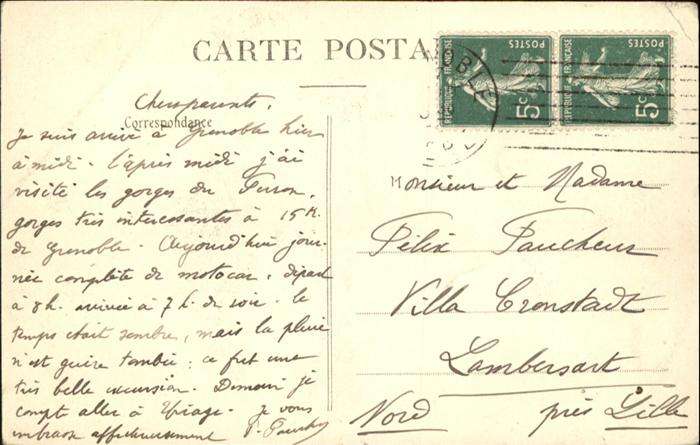 CARTE POSTA
RÉPUBLIQUE FRANÇAISE
POSTES
5c
RÉPUBLIQUE FRANÇAISE
POSTES
5c
OBLE
Chers parents,
Correspondance
Je suis arrivé à Grenoble hier
à midi. L'après midi j'ai
visité les gorges du Furon,
gorges très interessantes à 15 K.
de Grenoble. Aujourd'hui jour-
née complète de motocar, départ
à 8h. arrivée à 7h. du soir. le
temps était sombre, mais la pluie
n'est guère tombée; ce fut une
très belle excursion. Demain je
compt aller à Uriage. Je vous
embrasse affectueusement
Monsieur et Madame
Félix Faucheur
Villa Cronstadt
Lambersart
Nord près Lille